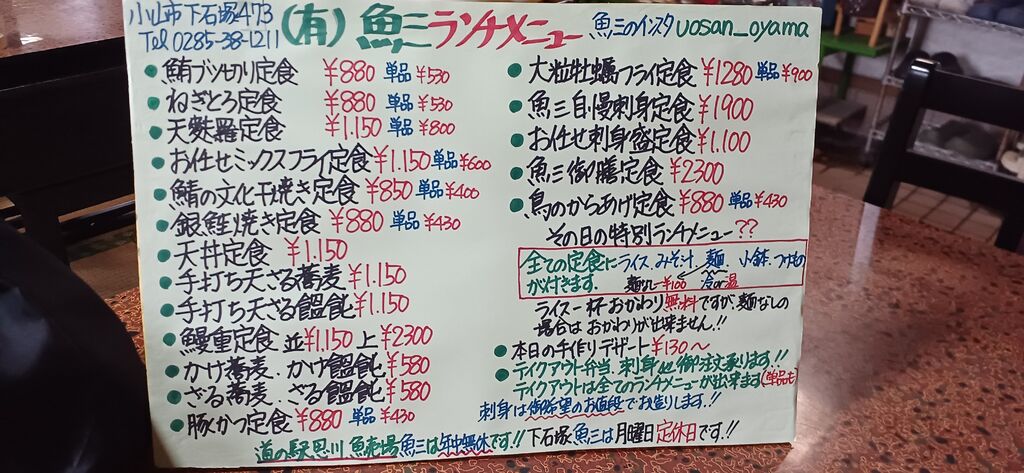 小山市下石塚473
Tel 0285-38-1211
(有) 魚三ランチメニュー
魚三のインスタ uosan_oyama
鮪ブツ切り定食 ¥880 単品 ¥530
ねぎとろ定食 ¥880 単品 ¥530
天麩羅定食 ¥1.150 単品 ¥800
お任せミックスフライ定食 ¥1.150 単品 ¥600
鯖の文化干焼き定食 ¥850 単品 ¥400
銀鮭焼き定食 ¥880 単品 ¥430
天丼定食 ¥1.150
手打ち天ざる蕎麦 ¥1.150
手打ち天ざる饂飩 ¥1.150
鰻重定食 並¥1.150 上¥2300
かけ蕎麦、かけ饂飩 ¥580
ざる蕎麦、ざる饂飩 ¥580
豚かつ定食 ¥880 単品 ¥430
大粒牡蠣フライ定食 ¥1280 単品 ¥900
魚三自慢刺身定食 ¥1900
お任せ刺身盛定食 ¥1.100
魚三御膳定食 ¥2300
鳥のからあげ定食 ¥880 単品 ¥430
その日の特別ランチメニュー??
全ての定食にライス、みそ汁、麺、小鉢、つけもの
が付きます. 麺なし-¥100 冷or温
ライス一杯おかわり無料ですが、麺なしの
場合はおかわりが出来ません!!
本日の手作りデザート ¥130〜
テイクアウト弁当、刺身 他 御注文承ります!!
テイクアウトは全てのランチメニューが出来ます(単品も)
刺身は御希望のお値段でお造りします!!
道の駅思川 魚売場 魚三は年中無休です!! 下石塚魚三は月曜日定休日です!!